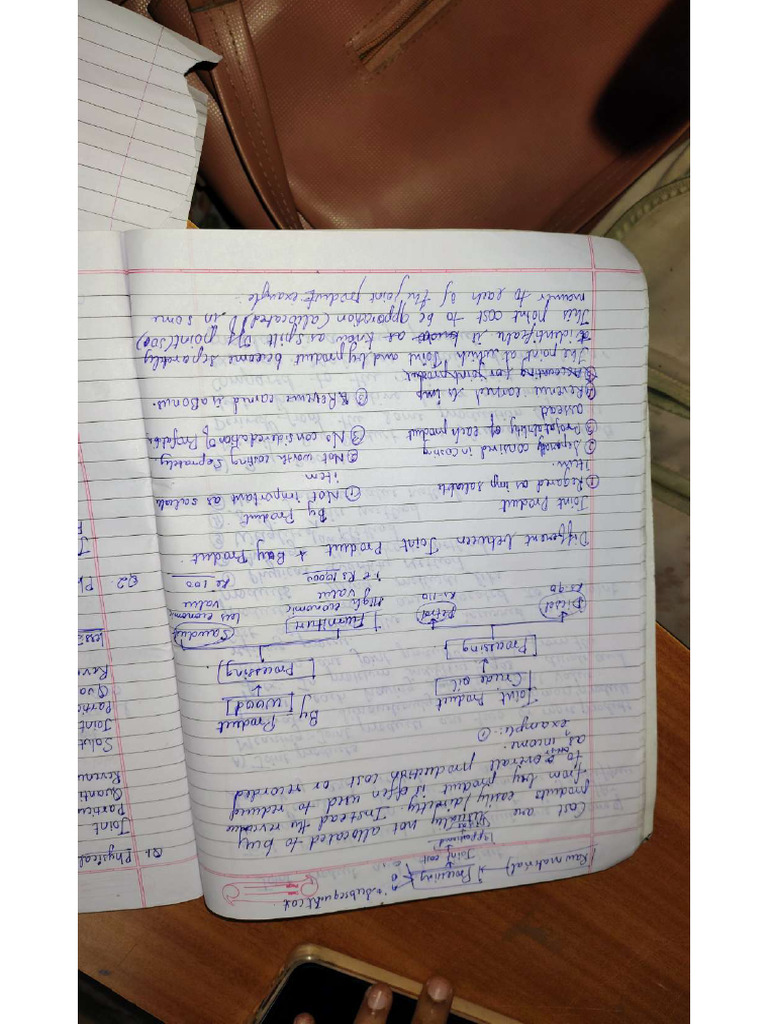 Raw material) → Processing
A
B
C
→ subsequent cost
Joint cost
Cost are not allocated to buy
products easily / directly. Instead the revenue
from by product is often used to reduced
to overall production cost or recorded
as income.
example:- ①
Joint Product
[Crude oil]
[Processing]
Diesel
Petrol
Rs-90
Rs-110
By - Product
[Wood]
[Processing]
[Furniture]
Sawdust
High economic
value
less economic
value
i.e Rs 10,000
Rs 100
Different between Joint Product & Bay Product
Joint Product
By Product
① Regared as imp salable
item.
① Not important as salable
item
② Seperatly consired in costing
② Not worth costing Seprately
③ Profatability of each product
③ No consideredation of Profatabi
④ Revenue earned is imp
④ Revenue earnd is a Bonus.
⑤ Accounting for joint product
The point at which Joint and by product become separately
identifiable it know as know as split off point (SOP)
This point cost to be apportion (allocated) in some
mounter to each of the joint product example:-
Q1 Physical
Joint
Particu
Quanti
Revenu
Solut
Joint
Partic
Qua
Reve
less:
Q2 Ph